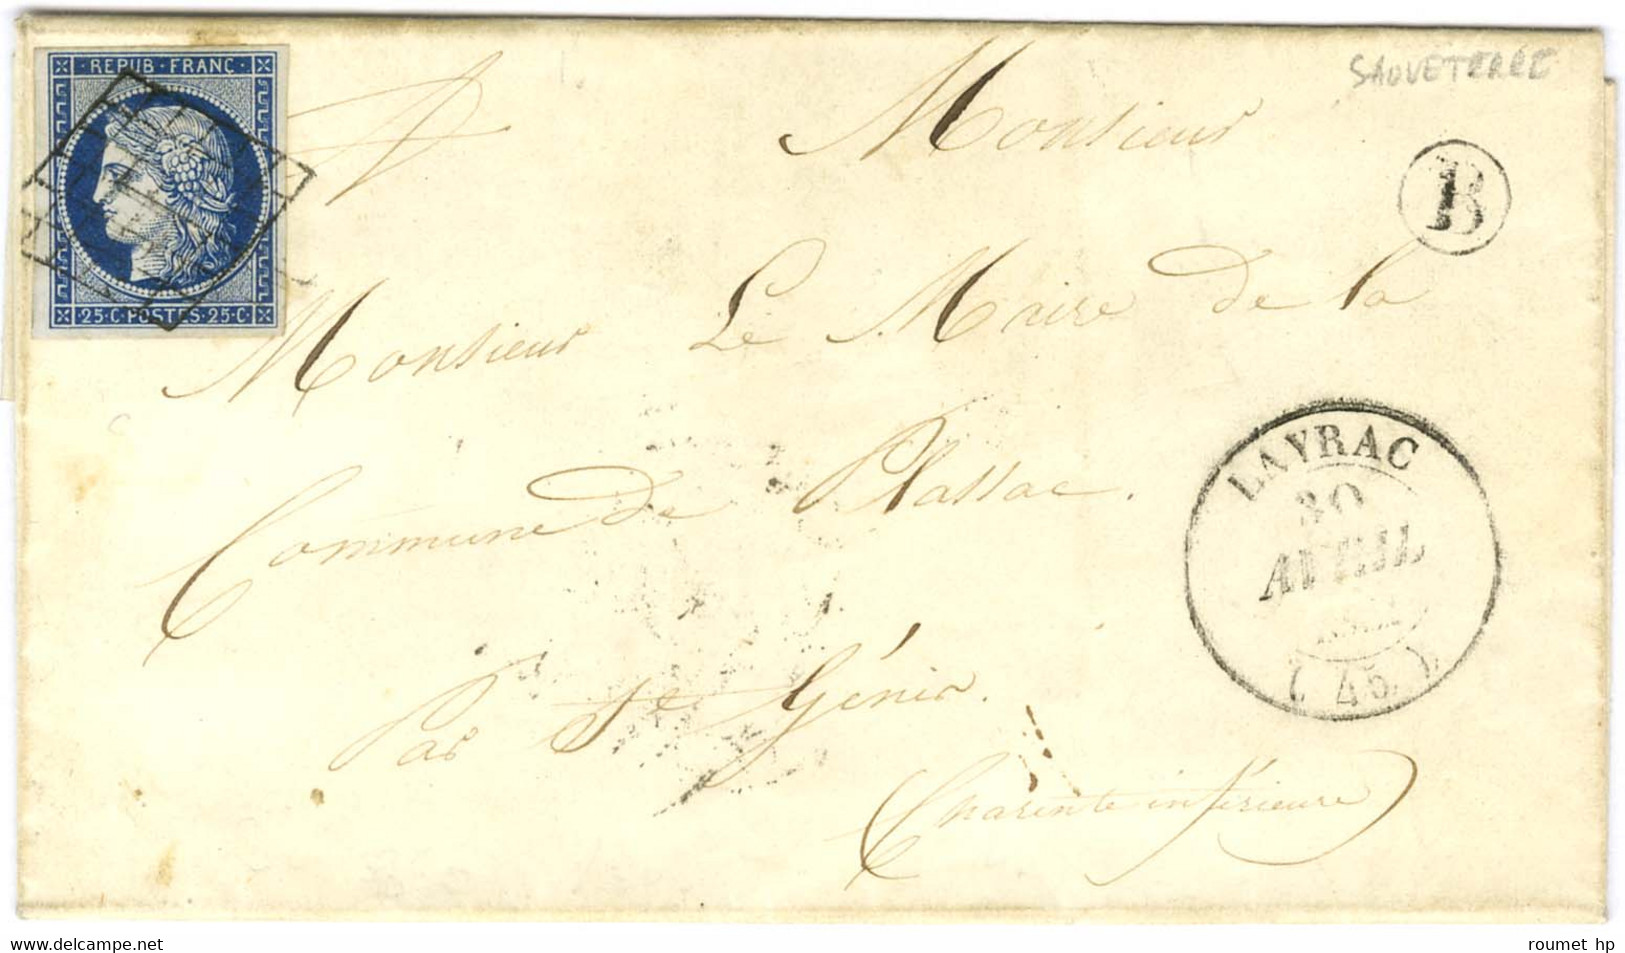 REPUB · FRANC ·
25 · C POSTES · 25 · C
SAUVETERRE
B
Monsieur
Monsieur Le Maire de la
Commune de Plassac.
Par St Génis.
Charente inférieure
LAYRAC
30
AVRIL
( 45 )
234124abcd
roumet hp